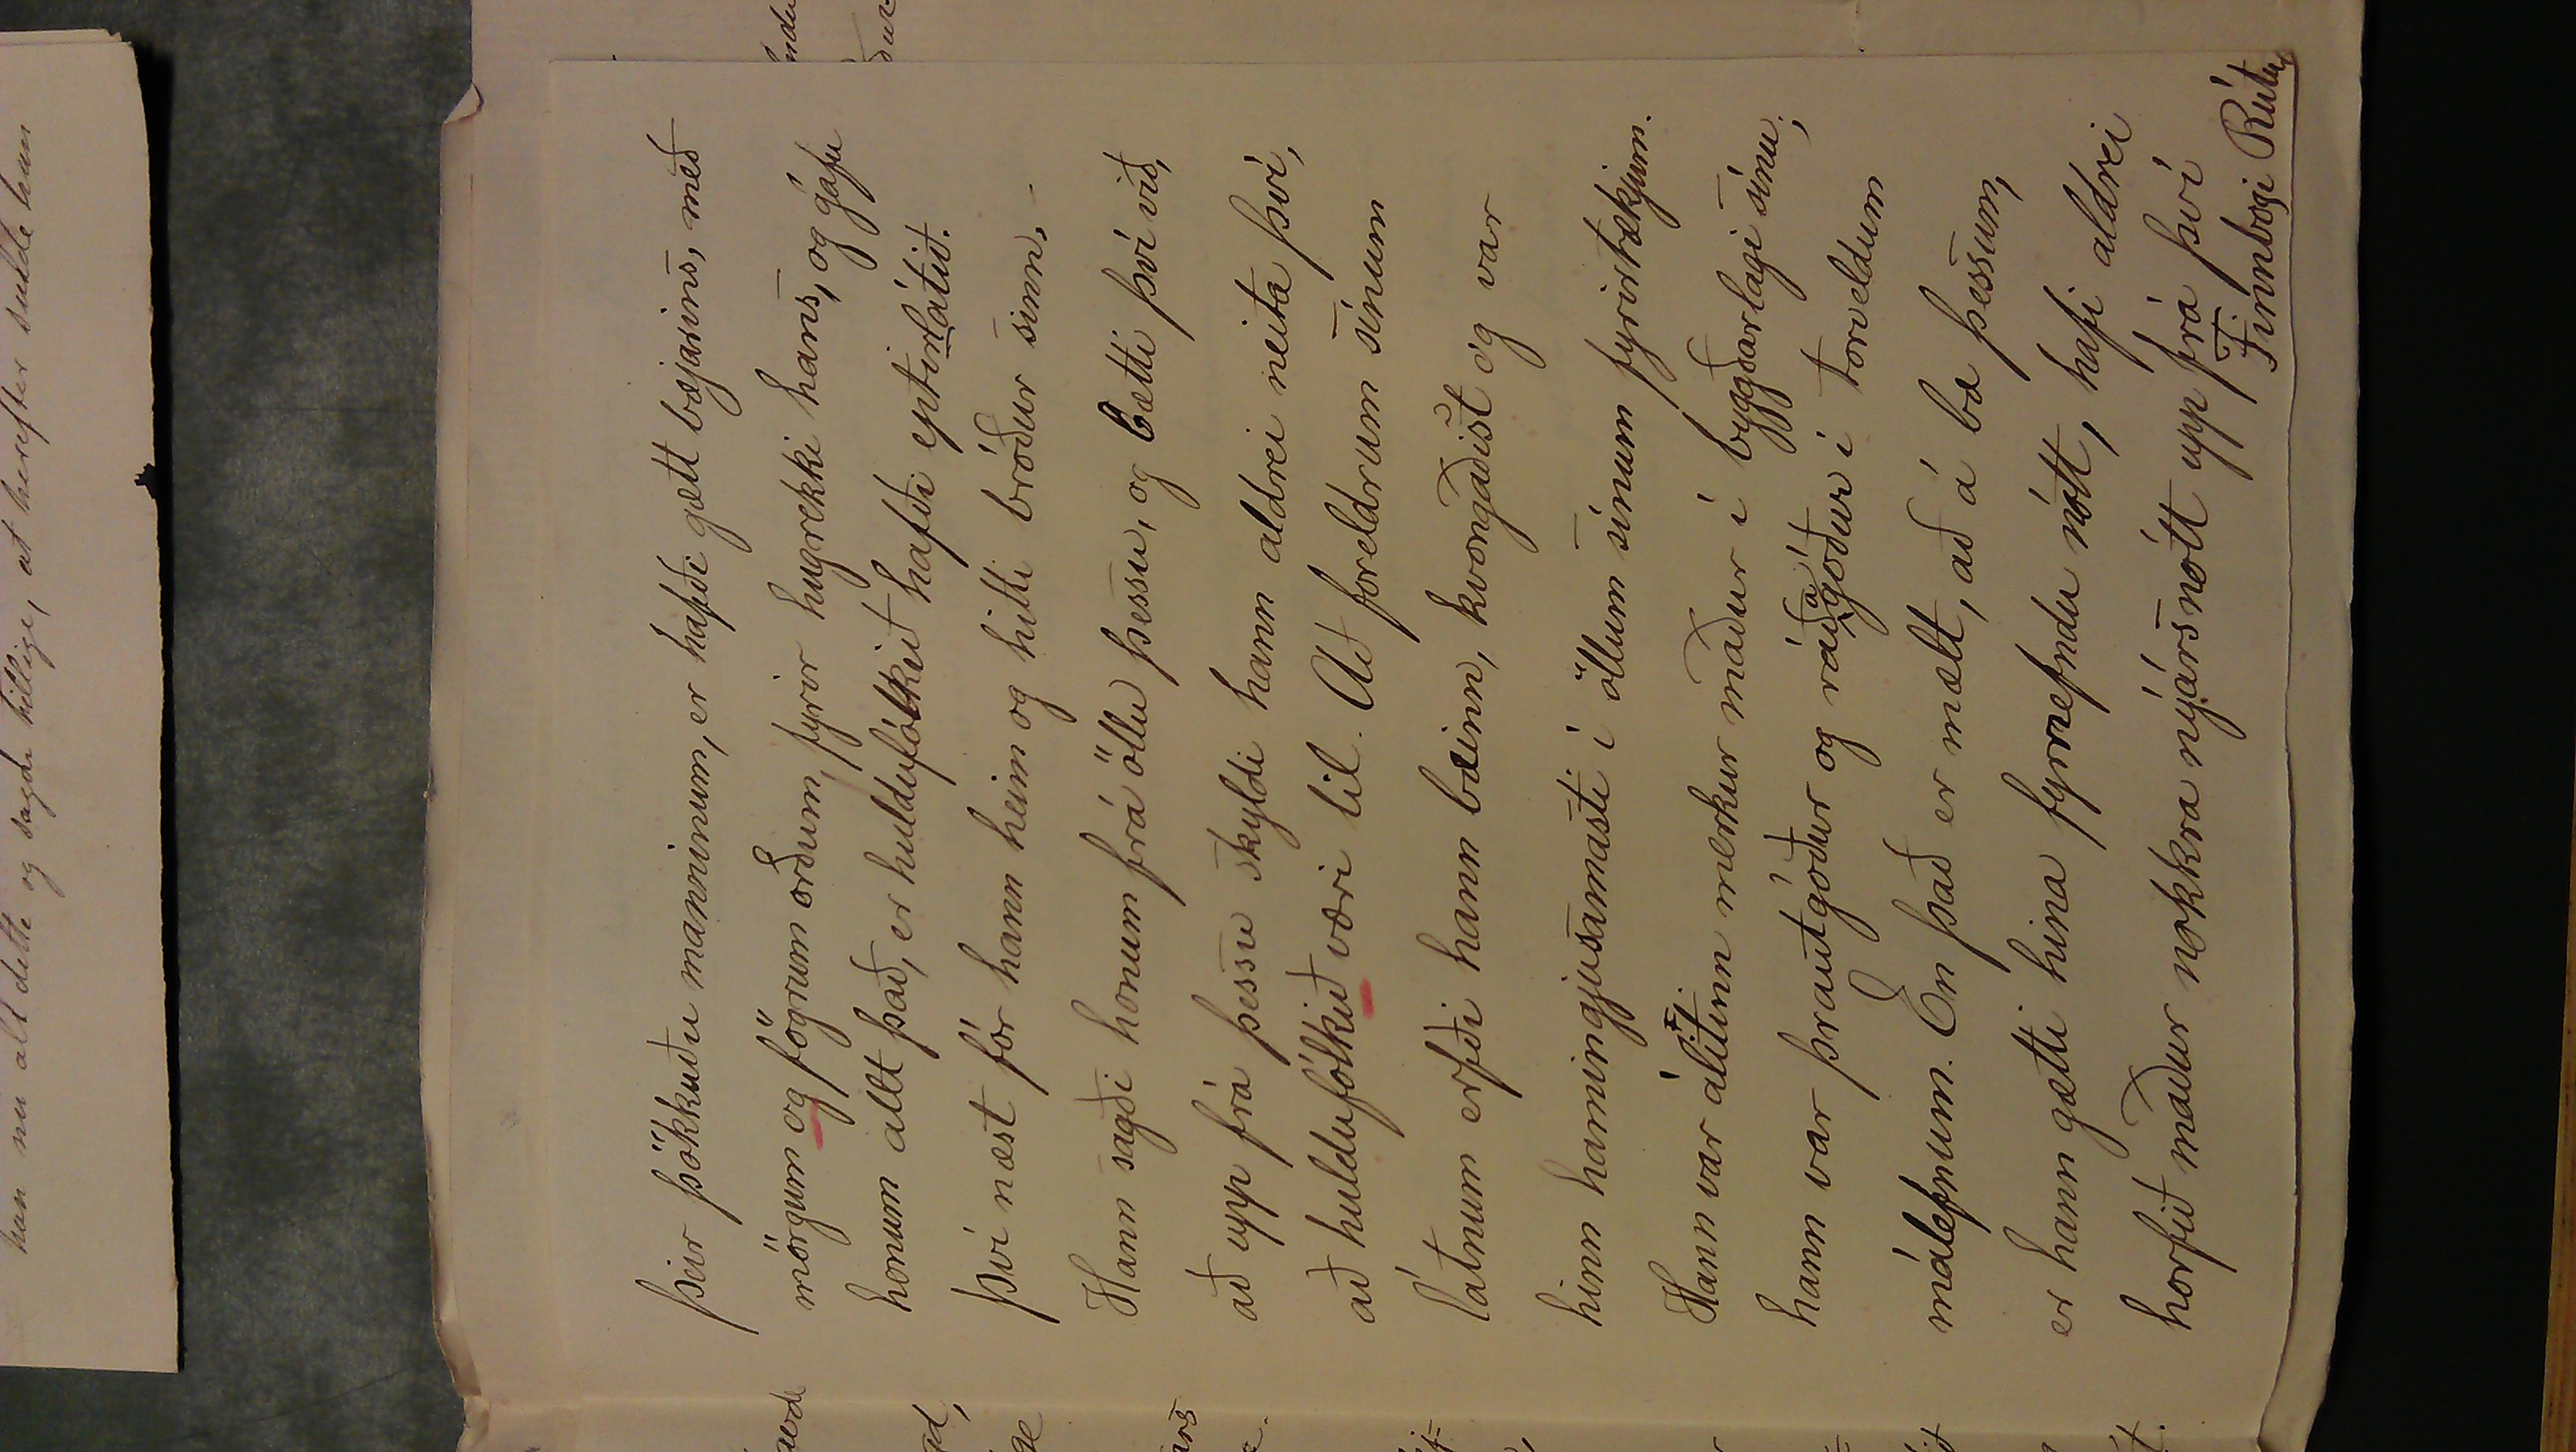 han nu alt dette og sagde tillige, at herefter skulde han
þeir þökkuðu manninum, er hafði gætt bæjarins, með
mörgum og fögrum orðum, fyrir hugrekki hans, og gáfu
honum allt það, er huldufólkið hafði eptirlátið.
Því næst fór hann heim og hitti bróður sinn, -
Hann sagði honum frá öllu þessu, og bætti því við,
að upp frá þessu skyldi hann aldrei neita því,
að huldufólkið væri til. Að foreldrum sínum
látnum erfði hann bæinn, kvongaðist og var
hinn hamingjusamasti í öllum sínum fyrirtækjum.
Hann var álitinn merkur maður í byggðarlagi sínu;
hann var þrautgóður og ráðagóður í torveldum
málefnum. En það er mælt, að á bæ þessum,
er hann gætti hina fyrrnefndu nótt, hafi aldrei
horfið maður nokkra nýársnótt upp frá því
Finnbogi Rútur